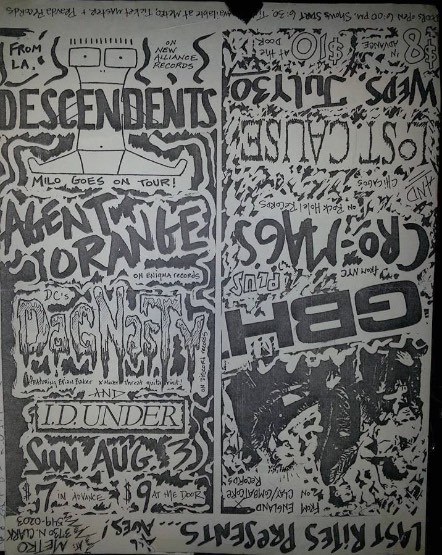 FROM
L.A.
ON
NEW
ALLIANCE
RECORDS
DESCENDENTS
MILO GOES ON TOUR!
AGENT
ORANGE
ON ENIGMA RECORDS
DC's
DAG NASTY
ON DISCHORD RECORDS
AND
I.D. UNDER
SUN AUG 3
$7 IN ADVANCE $9 AT THE DOOR
AT METRO
3730 N. CLARK
549-0203
LAST RITES PRESENTS...
AGES!
FROM ENGLAND
ON CLAY/COMBATCORE
RECORDS
GBH
PLUS
FROM NYC
CRO-MAGS
ON ROCK HOTEL RECORDS
AND
CHICAGO'S
LOST CAUSE
WEDS JULY 30
$8 IN ADVANCE
$10 AT THE DOOR
OPEN 6:00 pm. Shows START 6:30.
available at Metro, Ticketmaster +
Records